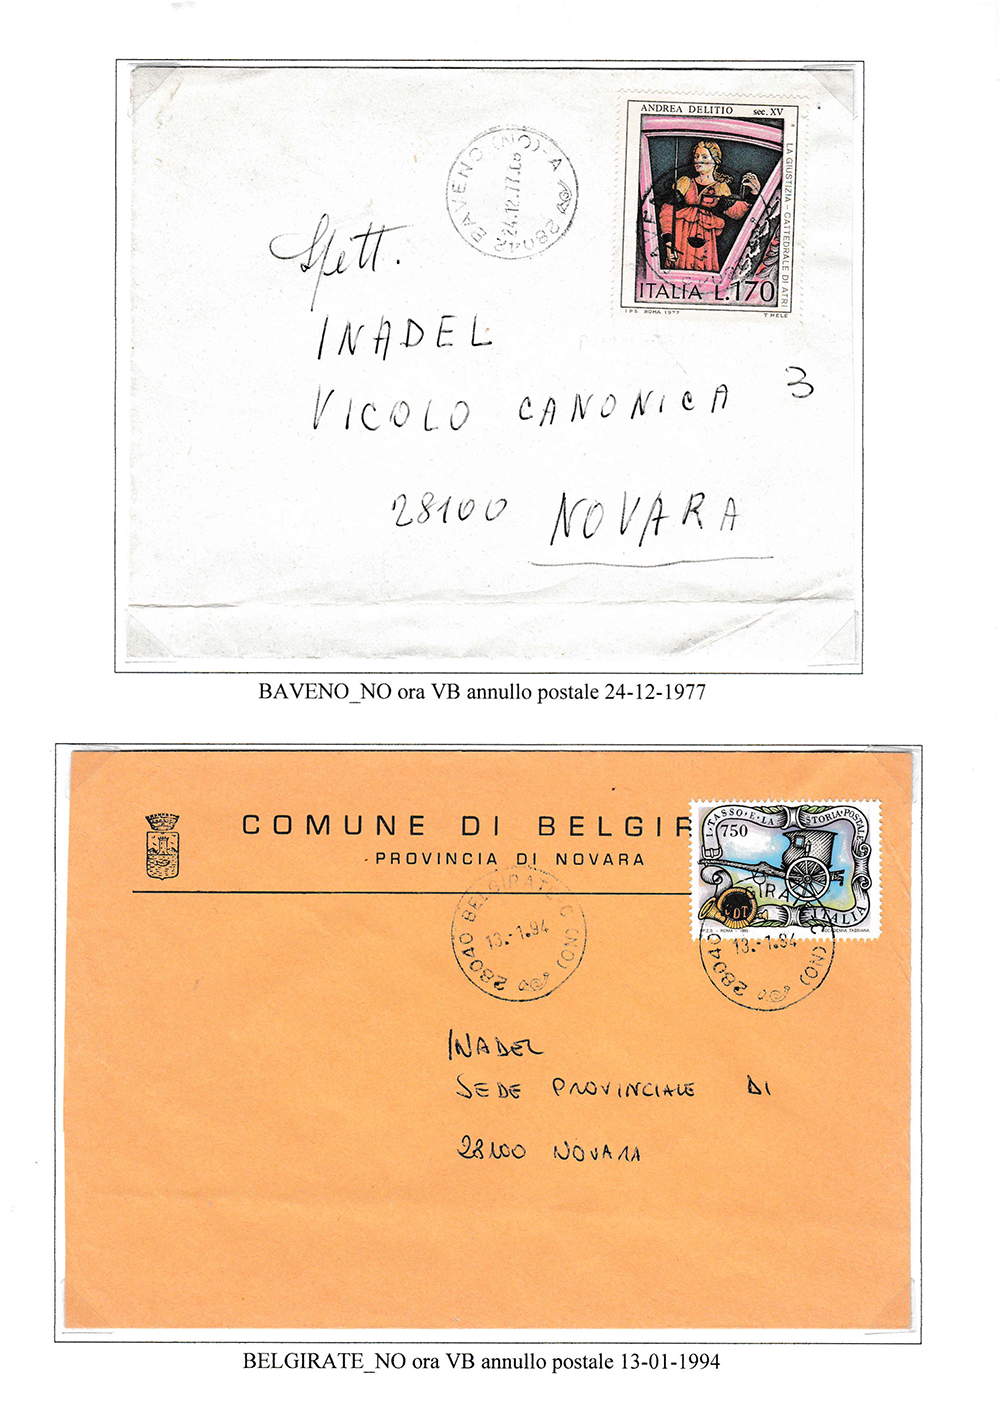 ANDREA DELITIO sec. XV
LA GIUSTIZIA - CATTEDRALE DI ATRI
ITALIA L.170
I.P.S. ROMA 1977 T. MELE
28042 BAVENO (NO) - A
24.12.77
Spett.
INADEL
VICOLO CANONICA 3
28100 NOVARA
BAVENO_NO ora VB annullo postale 24-12-1977
COMUNE DI BELGIR
PROVINCIA DI NOVARA
I TASSO E LA STORIA POSTALE
750
ITALIA
I.P.Z.S. - ROMA - 1993
28040 BELGIRATE C (NO)
13.-1.94
GIRA
28040 C (NO)
13.-1.94
INADEL
SEDE PROVINCIALE DI
28100 NOVARA
BELGIRATE_NO ora VB annullo postale 13-01-1994